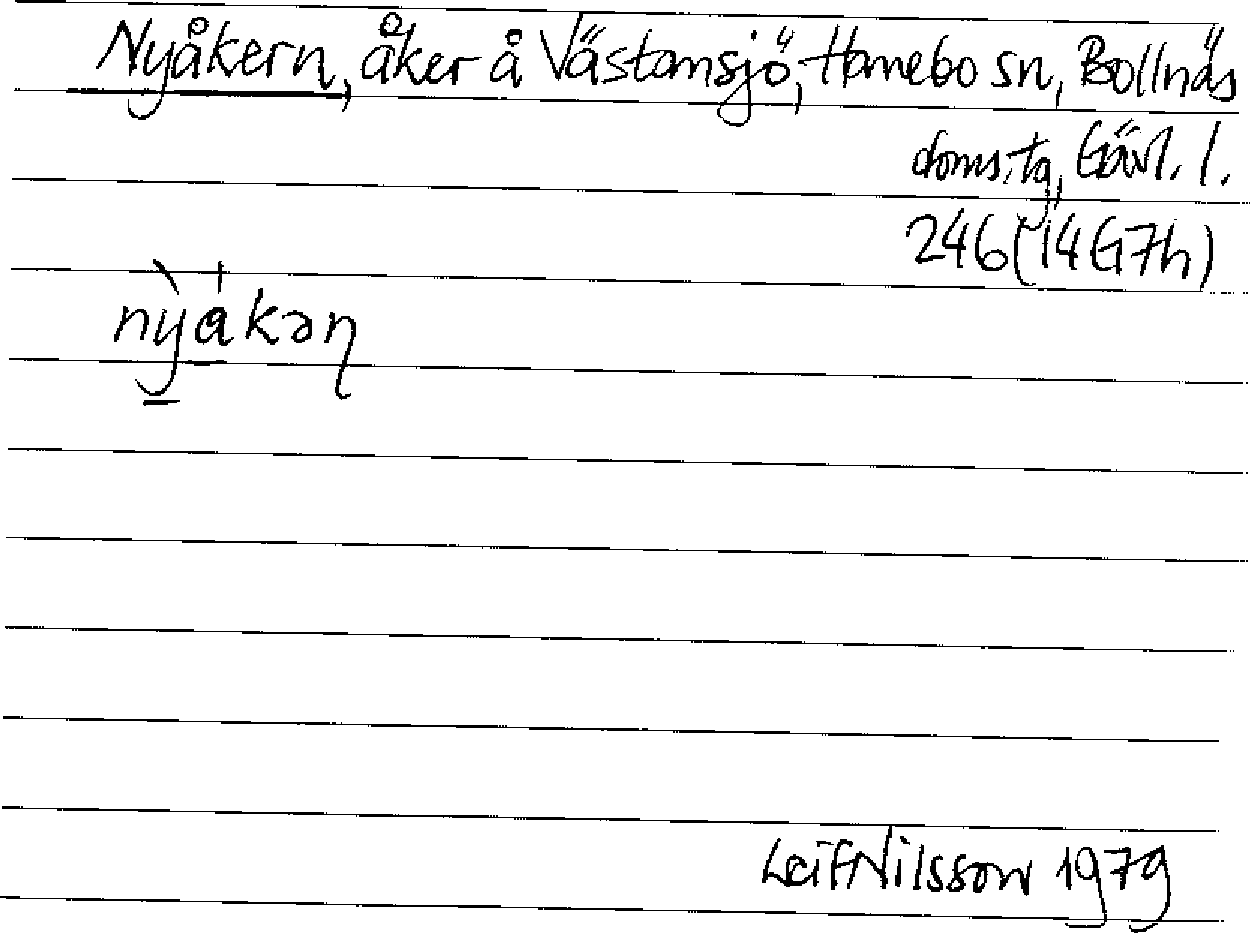 Nyåkern, åker å Västansjö, Hanebo sn, Bollnäs
doms.tg, Gävl. l.
246 (14G7h)
nỳa̍kəɳ
Leif Nilsson 1979